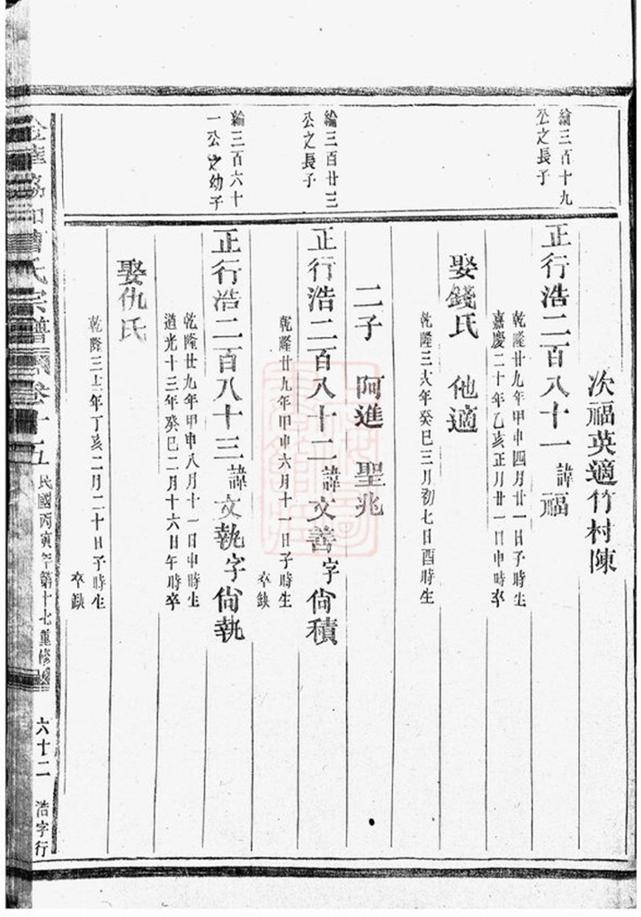 次福英適竹村陳
綸三百十九
公之長子
正行浩二百八十一諱福
乾隆廿九年甲申四月廿一日子時生
嘉慶二十年乙亥正月廿一日申時卒
娶錢氏 他適
乾隆三十八年癸巳三月初七日酉時生
二子 阿進 聖兆
綸三百廿三
公之長子
正行浩二百八十二諱文善字尙積
乾隆廿九年甲申六月十一日子時生
卒缺
綸三百六十
一公之幼子
正行浩二百八十三諱文執字尙執
乾隆廿九年甲申八月十一日申時生
道光十三年癸巳一月十六日午時卒
娶仇氏
乾隆三十二年丁亥二月二十日子時生
卒缺
曹氏宗譜 卷十五 民國丙寅年第十七重修 六十二 浩字行